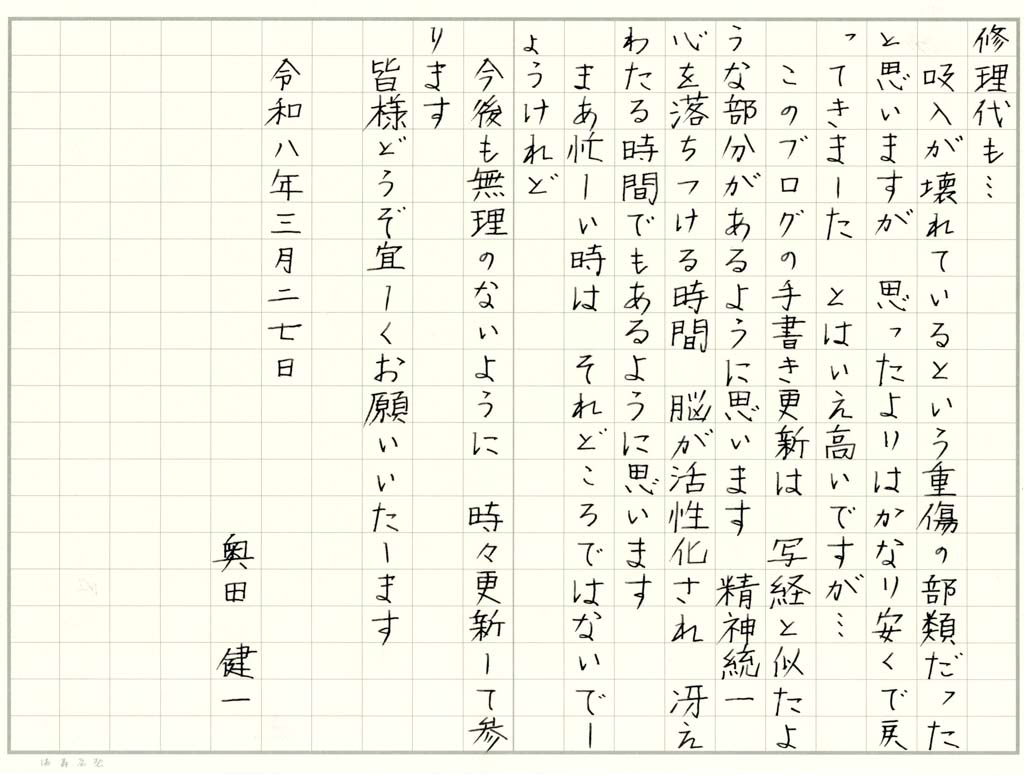 修理代も…
吸入が壊れているという重傷の部類だった
と思いますが　思ったよりはかなり安くで戻
ってきました　とはいえ高いですが…
このブログの手書き更新は　写経と似たよ
うな部分があるように思います　精神統一
心を落ちつける時間　脳が活性化され　冴え
わたる時間でもあるように思います
まあ忙しい時は　それどころではないでし
ょうけれど
今後も無理のないように　時々更新して参
ります
皆様どうぞ宜しくお願いいたします
令和八年三月二七日
奥田　健一